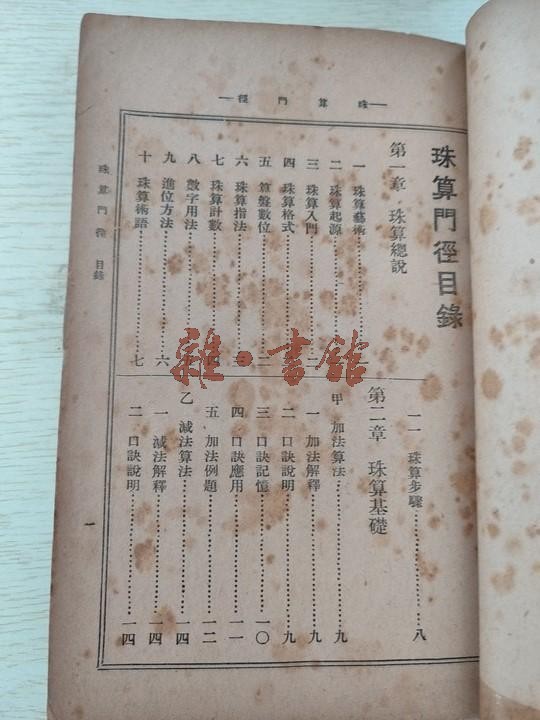 —徑 門 算 珠—
珠算門徑目錄
第一章 珠算總說
一 珠算藝術
二 珠算起源
三 珠算入門……二
四 珠算格式
五 算盤數位
六 珠算指法
七 珠算計數
八 數字用法
九 進位方法……六
十 珠算術語……七
一一 珠算步驟……八
第二章 珠算基礎
甲 加法算法……九
一 加法解釋……九
二 口訣說明……九
三 口訣記憶……一〇
四 口訣應用……一一
五 加法例題……一二
乙 減法算法……一四
一 減法解釋……一四
二 口訣說明……一四
珠算門徑 目錄
一
雜·書館